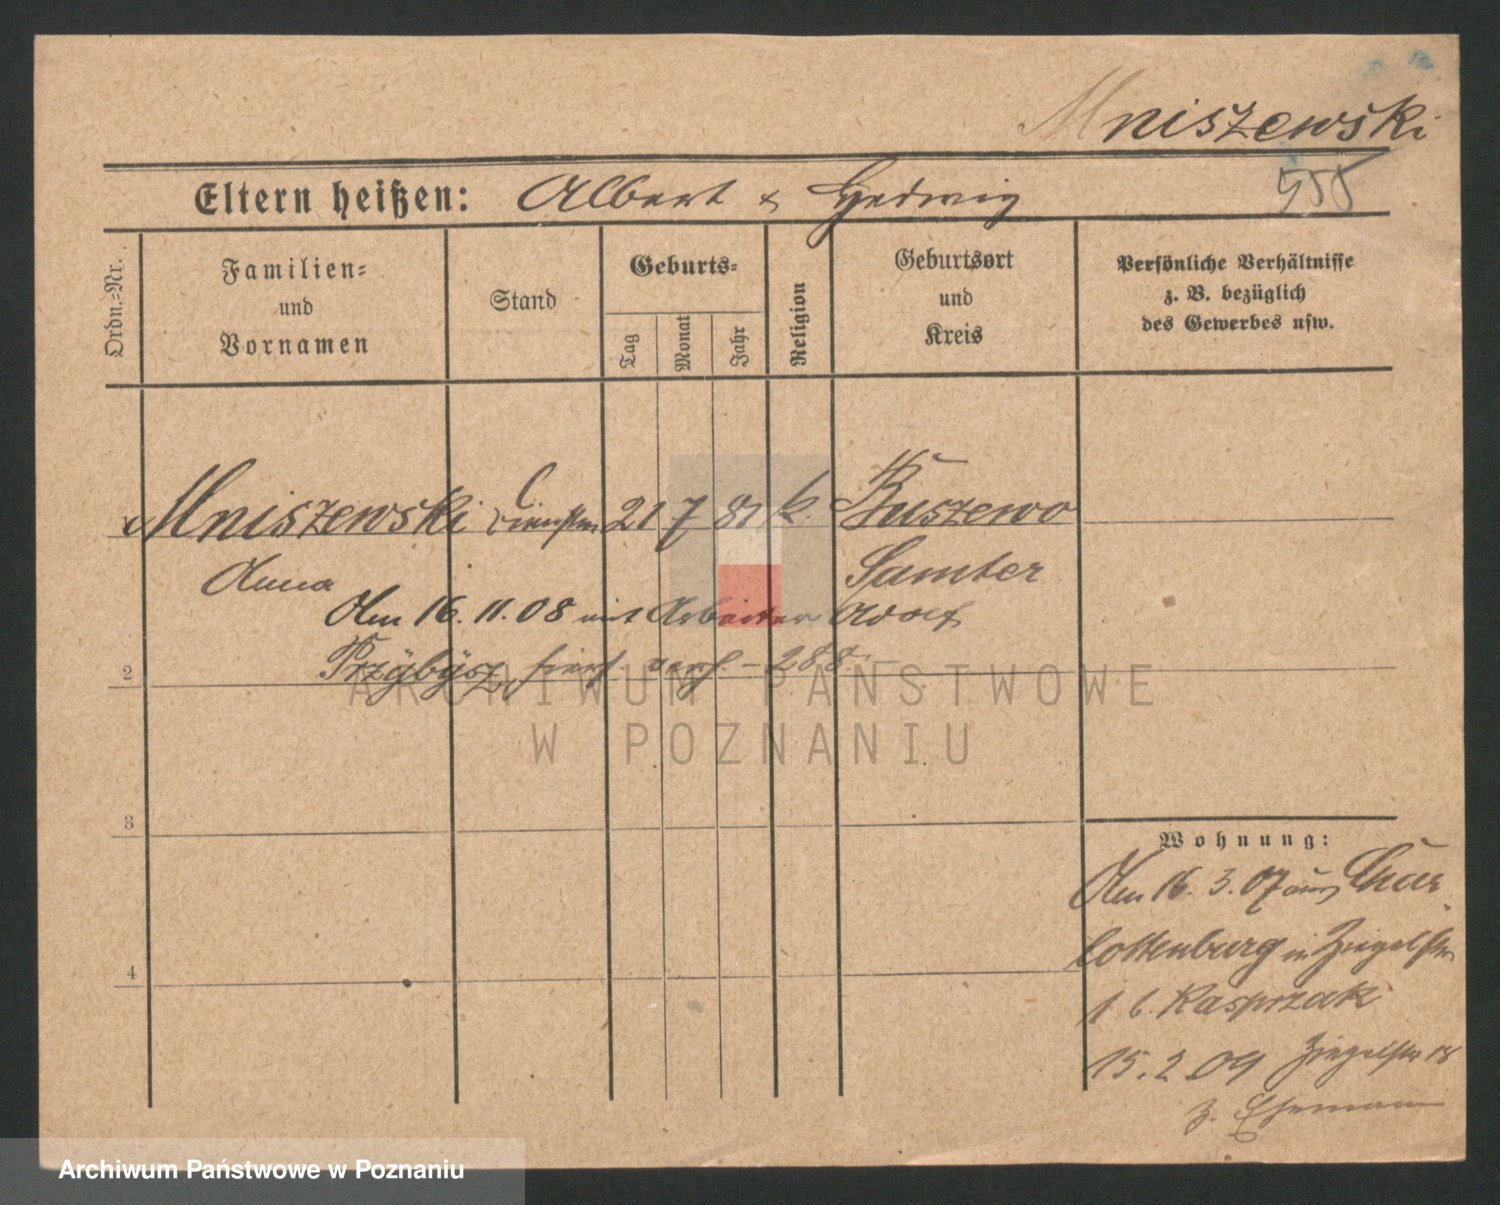 Mniszewski
Eltern heißen: Albert & Hedwig
558
Ordn.-Nr.
Familien-
und
Vornamen
Stand
Geburts-
Tag
Monat
Jahr
Religion
Geburtsort
und
Kreis
Persönliche Verhältnisse
z. B. bezüglich
des Gewerbes usw.
Mniszewski 21 7 81 k. Buszewo
Anna Samter
Am 16. 11. 08 mit Arbeiter Adolf
2 Przÿbÿsz hiers. verh. – 288. –
ARCHIWUM PAŃSTWOWE
W POZNANIU
3
Wohnung:
Am 16. 3. 07 aus Char-
lottenburg in Ziegelstr.
4
1 b. Kasprzak
15. 2 09 Ziegelstr 18
z. Ehemann
Archiwum Państwowe w Poznaniu